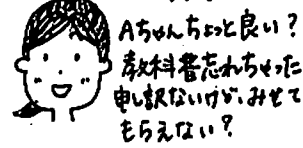 Aちゃんちょっと良い？
教科書忘れちゃった
申し訳ないけど、みせて
もらえない？